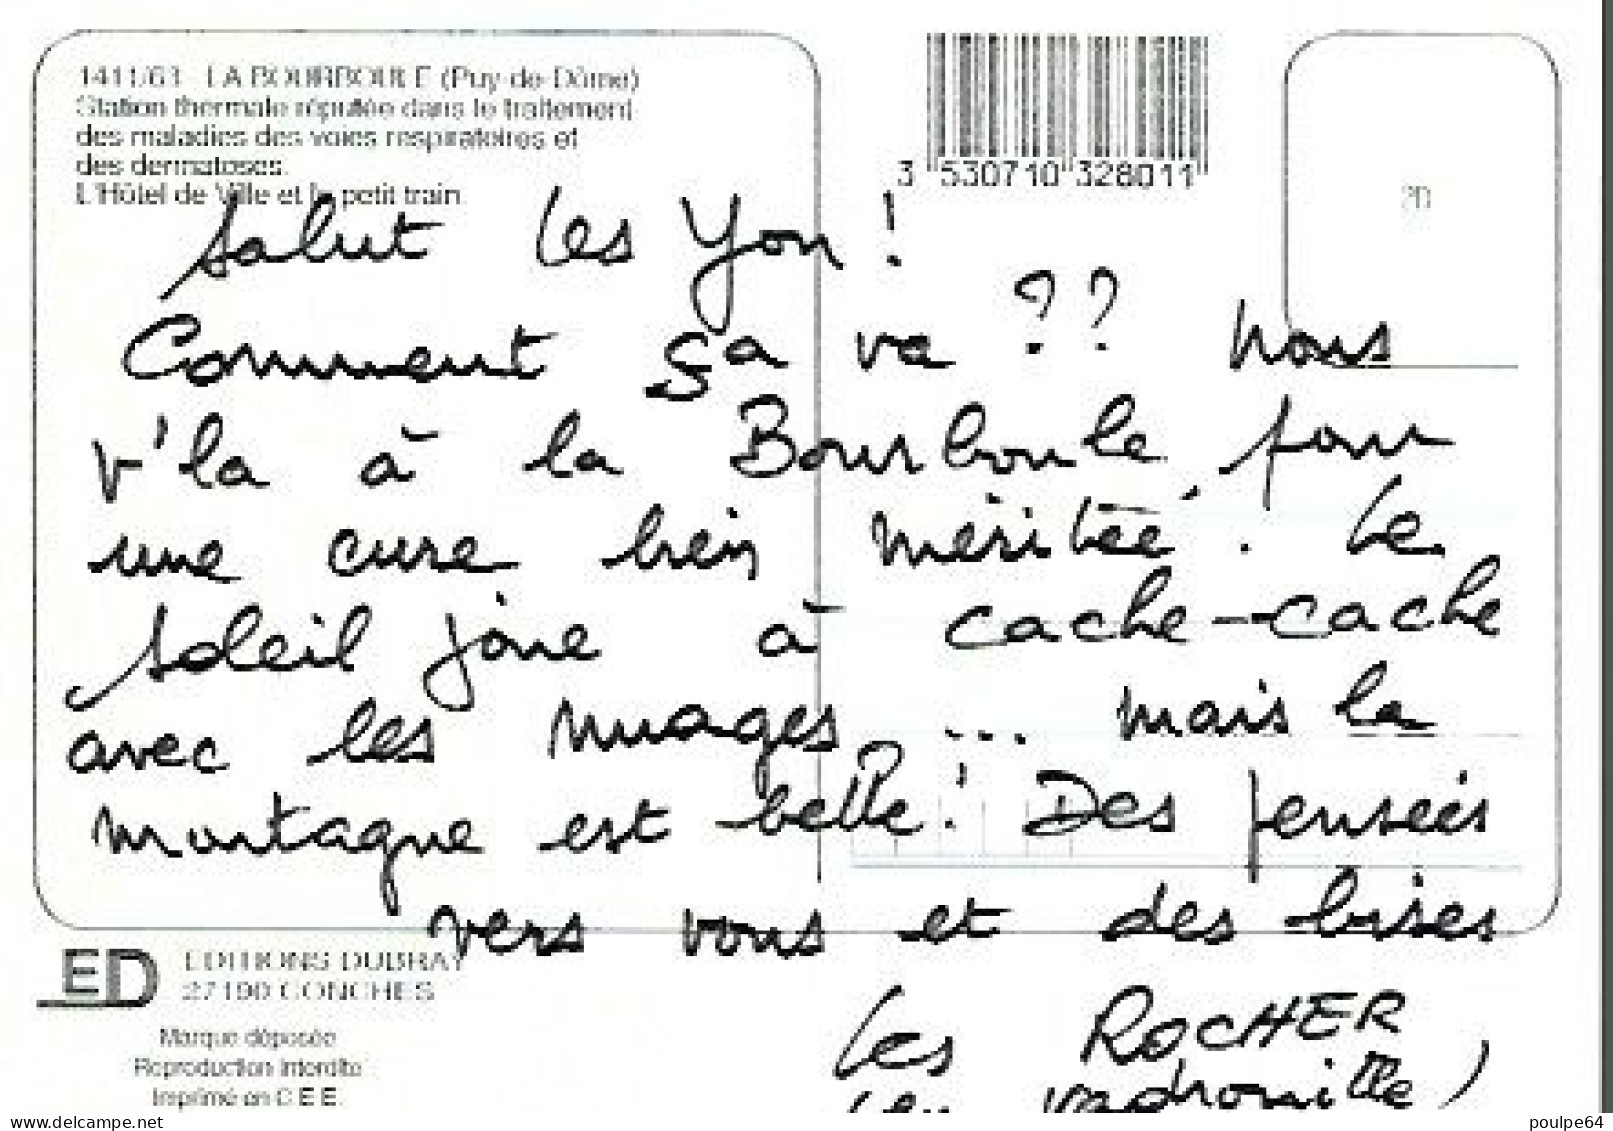 1411/63 LA BOURBOULE (Puy-de-Dôme)
Station thermale réputée dans le traitement
des maladies des voies respiratoires et
des dermatoses.
L'Hôtel de Ville et le petit train
3 530710 328011
20
Salut les Yon !
Comment ça va ?? Nous
v'là à la Bourboule, pour
une cure bien méritée. Le
soleil joue à cache-cache
avec les nuages ... mais la
montagne est belle ! Des pensées
vers vous et des bises
Les ROCHER
vadrouille)
ED
EDITIONS DUBRAY
27190 CONCHES
Marque déposée
Reproduction Interdite
Imprimé en C.E.E.
www.delcampe.net
poulpe64